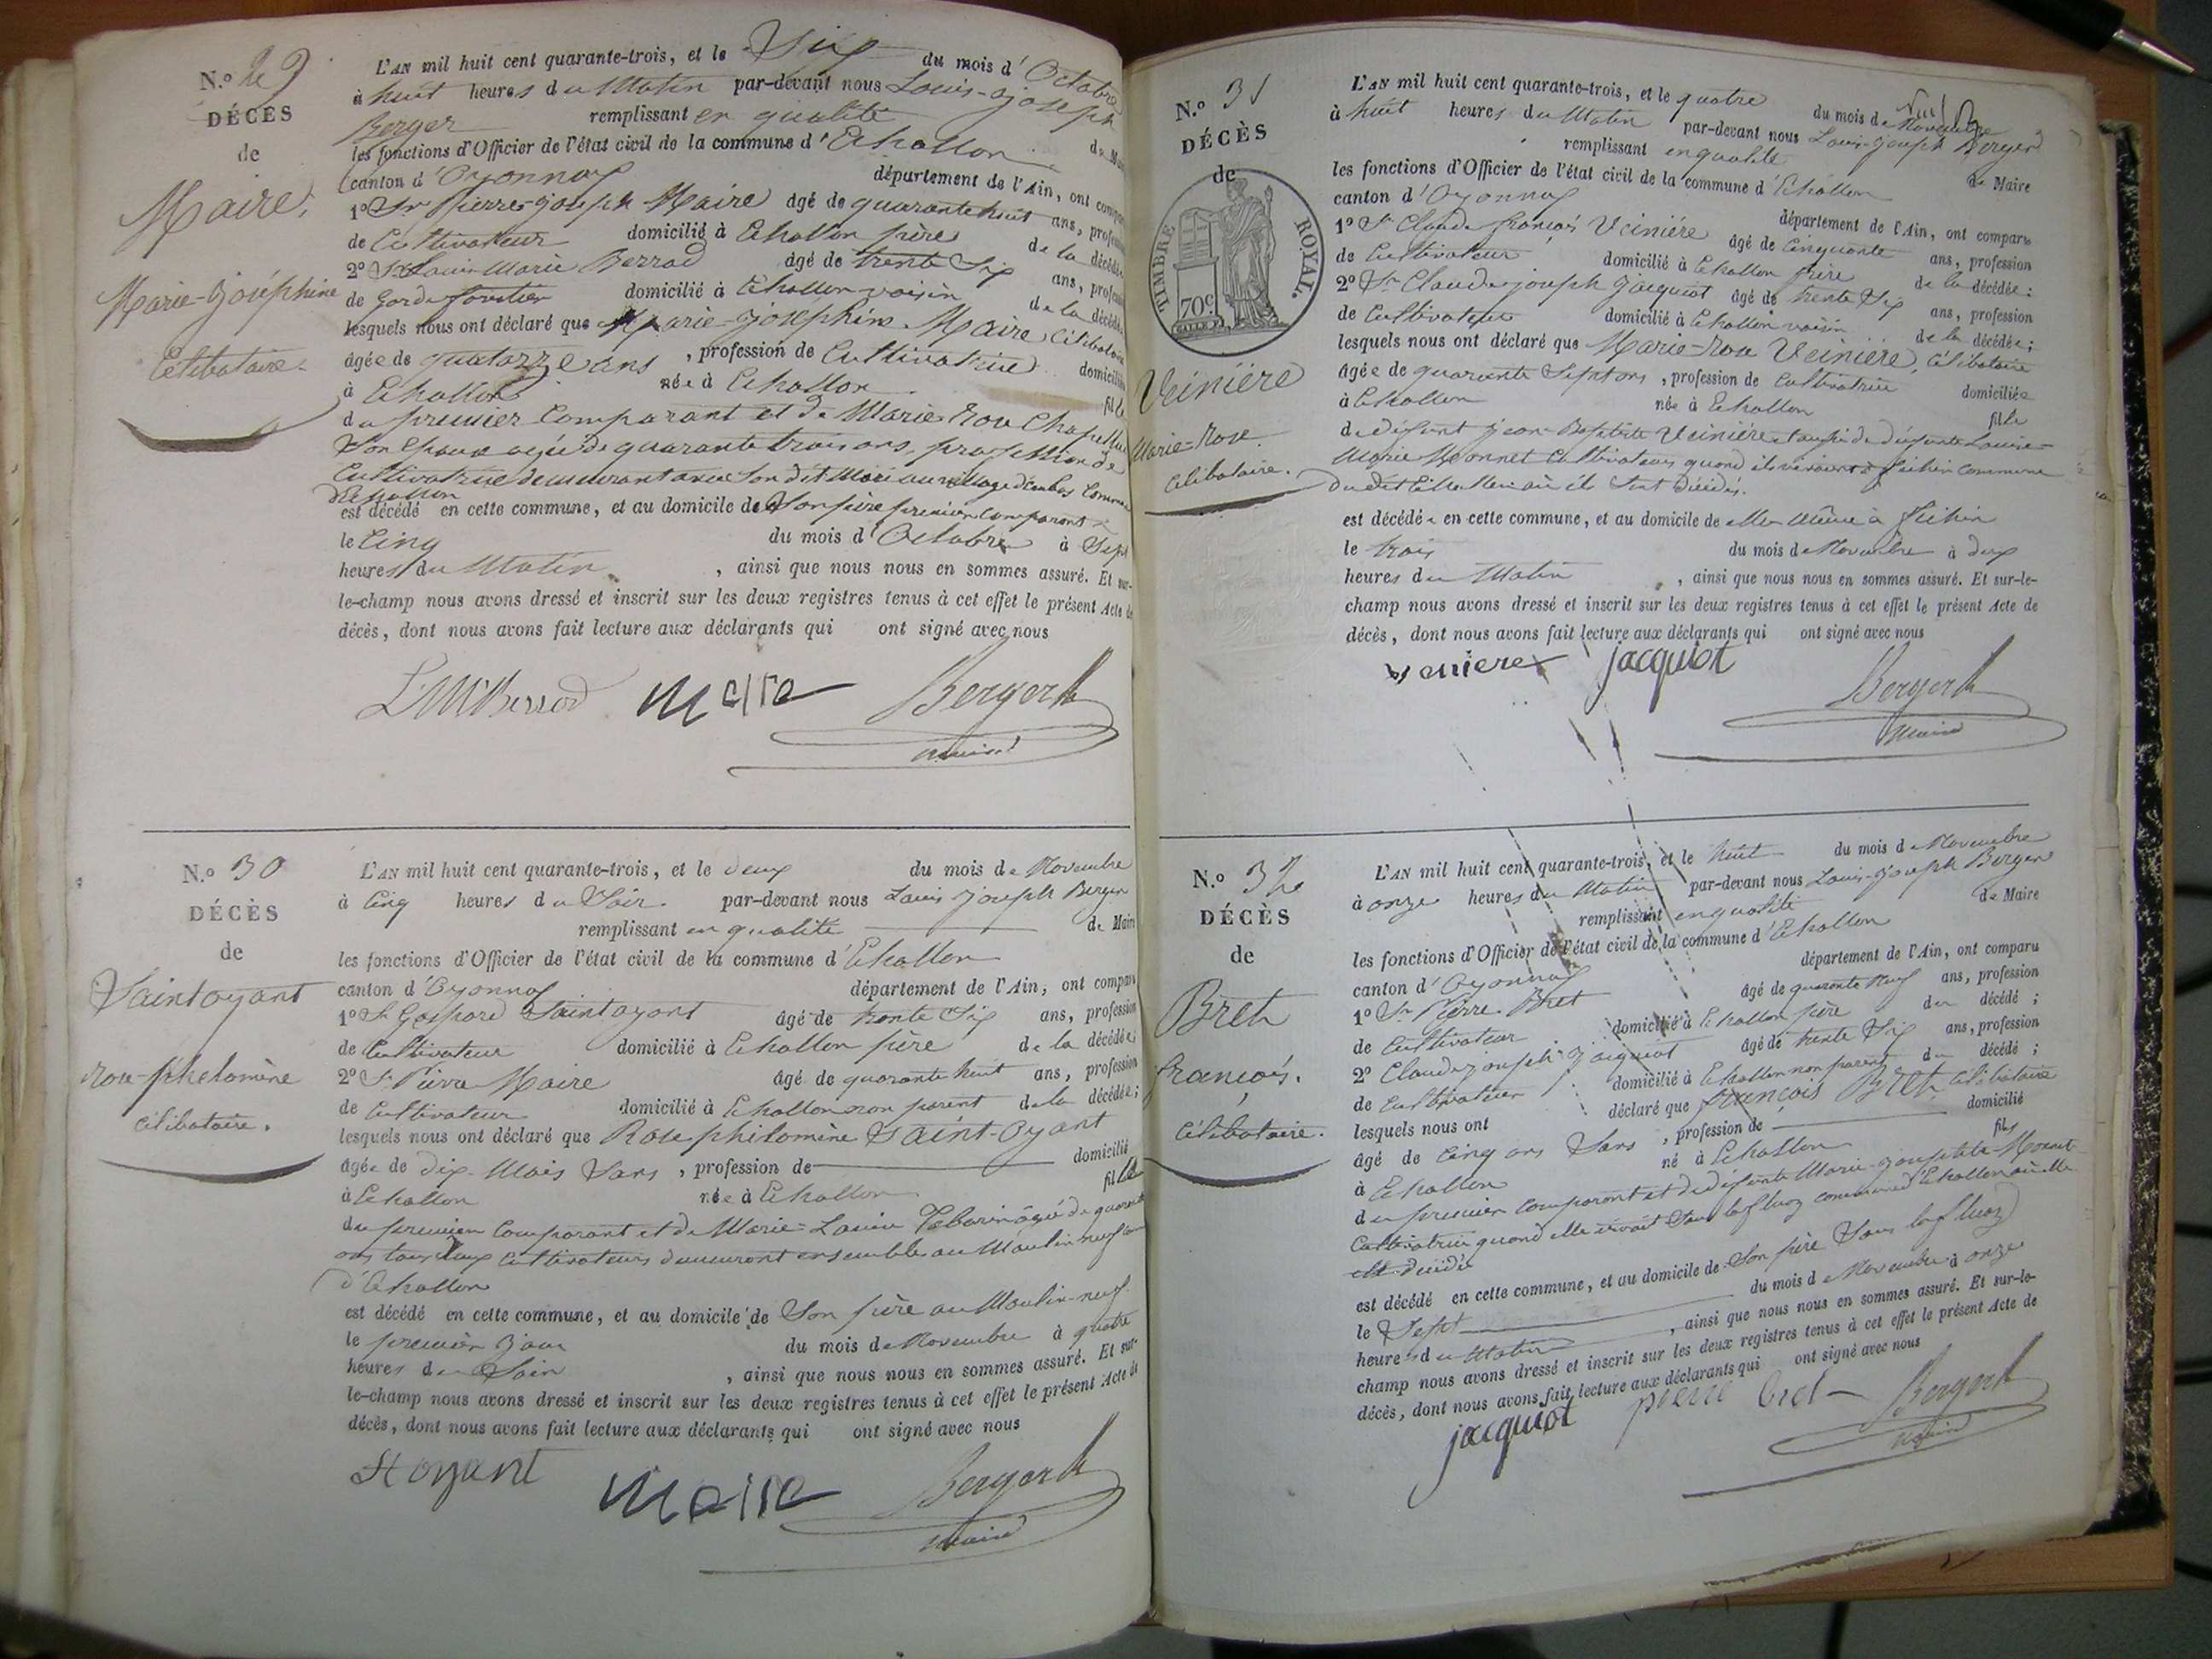 N.º 29
DÉCÈS
de
Maire,
Marie-joséphine
Célibataire.
L'AN mil huit cent quarante-trois, et le Six du mois d'Octobre
à huit heures du Matin par-devant nous Louis-joseph
Berger remplissant en qualité de Maire
les fonctions d'Officier de l'état civil de la commune d'Echallon
canton d'Oyonnax département de l'Ain, ont comparu
1º Sr Pierre-joseph Maire âgé de quarante huit ans, profession
de Cultivateur domicilié à Echallon père de la décédée
2º Sr Louis Marie Berrod âgé de trente Six ans, profession
de Garde forestier domicilié à Echallon voisin de la décédée
lesquels nous ont déclaré que Marie-joséphine Maire Célibataire
âgée de quatorze ans, profession de Cultivatrice domiciliée
à Echallon née à Echallon fille
du premier Comparant et de Marie Rose
Son épouse agée de quarante trois ans, profession de
Cultivatrice demeurant avec Son dit Mari au village
d'Echallon
est décédé en cette commune, et au domicile de Son père premier comparant
le Cinq du mois d'Octobre à Sept
heures du Matin, ainsi que nous nous en sommes assuré. Et sur-
le-champ nous avons dressé et inscrit sur les deux registres tenus à cet effet le présent Acte de
décès, dont nous avons fait lecture aux déclarants qui ont signé avec nous
LM Berrod Maire Berger
maire
N.º 30
DÉCÈS
de
Saintoyant
rose-phelomène
célibataire.
L'AN mil huit cent quarante-trois, et le deux du mois de Novembre
à Cinq heures du Soir par-devant nous Louis-joseph Berger
remplissant en qualité de Maire
les fonctions d'Officier de l'état civil de la commune d'Echallon
canton d'Oyonnax département de l'Ain, ont comparu
1º Sr Gaspard Saintoyant âgé de trente Six ans, profession
de Cultivateur domicilié à Echallon père de la décédée;
2º Sr Pierre Maire âgé de quarante huit ans, profession
de Cultivateur domicilié à Echallon non parent de la décédée;
lesquels nous ont déclaré que Rose philomène Saint-Oyant
âgée de dix Mois Sans, profession de domicilié
à Echallon née à Echallon fille
du premier Comparant et de Marie-Louise Tabarin âgée de quarante
ans tous deux Cultivateurs demeurant ensemble au Moulin-neuf
d'Echallon
est décédé en cette commune, et au domicile de Son père au Moulin-neuf
le premier jour du mois de Novembre à quatre
heures du Soir, ainsi que nous nous en sommes assuré. Et sur-
le-champ nous avons dressé et inscrit sur les deux registres tenus à cet effet le présent Acte de
décès, dont nous avons fait lecture aux déclarants qui ont signé avec nous
St oyant Maire Berger
maire
N.º 31
DÉCÈS
de
TIMBRE ROYAL.
70c.
Veinière
Marie-Rose
célibataire.
L'AN mil huit cent quarante-trois, et le quatre du mois de Novembre
à huit heures du Matin par-devant nous Louis-joseph Berger
remplissant en qualité de Maire
les fonctions d'Officier de l'état civil de la commune d'Echallon
canton d'Oyonnax département de l'Ain, ont comparu
1º Sr Claude françois Veinière âgé de Cinquante ans, profession
de Cultivateur domicilié à Echallon frère de la décédée;
2º Sr Claude-joseph Jacquiot âgé de trente Six ans, profession
de Cultivateur domicilié à Echallon voisin de la décédée;
lesquels nous ont déclaré que Marie-Rose Veinière, Célibataire
âgée de quarante Sept ans, profession de Cultivatrice domiciliée
à Echallon née à Echallon fille
de défunt Jean-Baptiste Veinière et aussi de défunte Louise-
Marie Monnet Cultivateurs quand ils vivaient à commune
du dit Echallon où ils Sont décédés.
est décédée en cette commune, et au domicile de elle Même à
le trois du mois de Novembre à deux
heures du Matin, ainsi que nous nous en sommes assuré. Et sur-le-
champ nous avons dressé et inscrit sur les deux registres tenus à cet effet le présent Acte de
décès, dont nous avons fait lecture aux déclarants qui ont signé avec nous
veniere jacquiot Berger
maire
N.º 32
DÉCÈS
de
Bret
françois.
célibataire.
L'AN mil huit cent quarante-trois, et le huit du mois de Novembre
à onze heures du Matin par-devant nous Louis-joseph Berger
remplissant en qualité de Maire
les fonctions d'Officier de l'état civil de la commune d'Echallon
canton d'Oyonnax département de l'Ain, ont comparu
1º Sr Pierre Bret âgé de quarante Neuf ans, profession
de Cultivateur domicilié à Echallon père du décédé;
2º Claude joseph Jacquiot âgé de trente Six ans, profession
de Cultivateur domicilié à Echallon non parent du décédé;
lesquels nous ont déclaré que françois Bret Célibataire
âgé de Cinq ans Sans, profession de domicilié
à Echallon né à Echallon fils
du premier Comparant et de défunte Marie-josephte Monnet
Cultivatrice quand elle vivait Sous commune d'Echallon où elle
est décédée
est décédé en cette commune, et au domicile de Son père Sous
le Sept du mois de Novembre à onze
heures du Matin, ainsi que nous nous en sommes assuré. Et sur-le-
champ nous avons dressé et inscrit sur les deux registres tenus à cet effet le présent Acte de
décès, dont nous avons fait lecture aux déclarants qui ont signé avec nous
jacquiot pierre bret Berger
maire